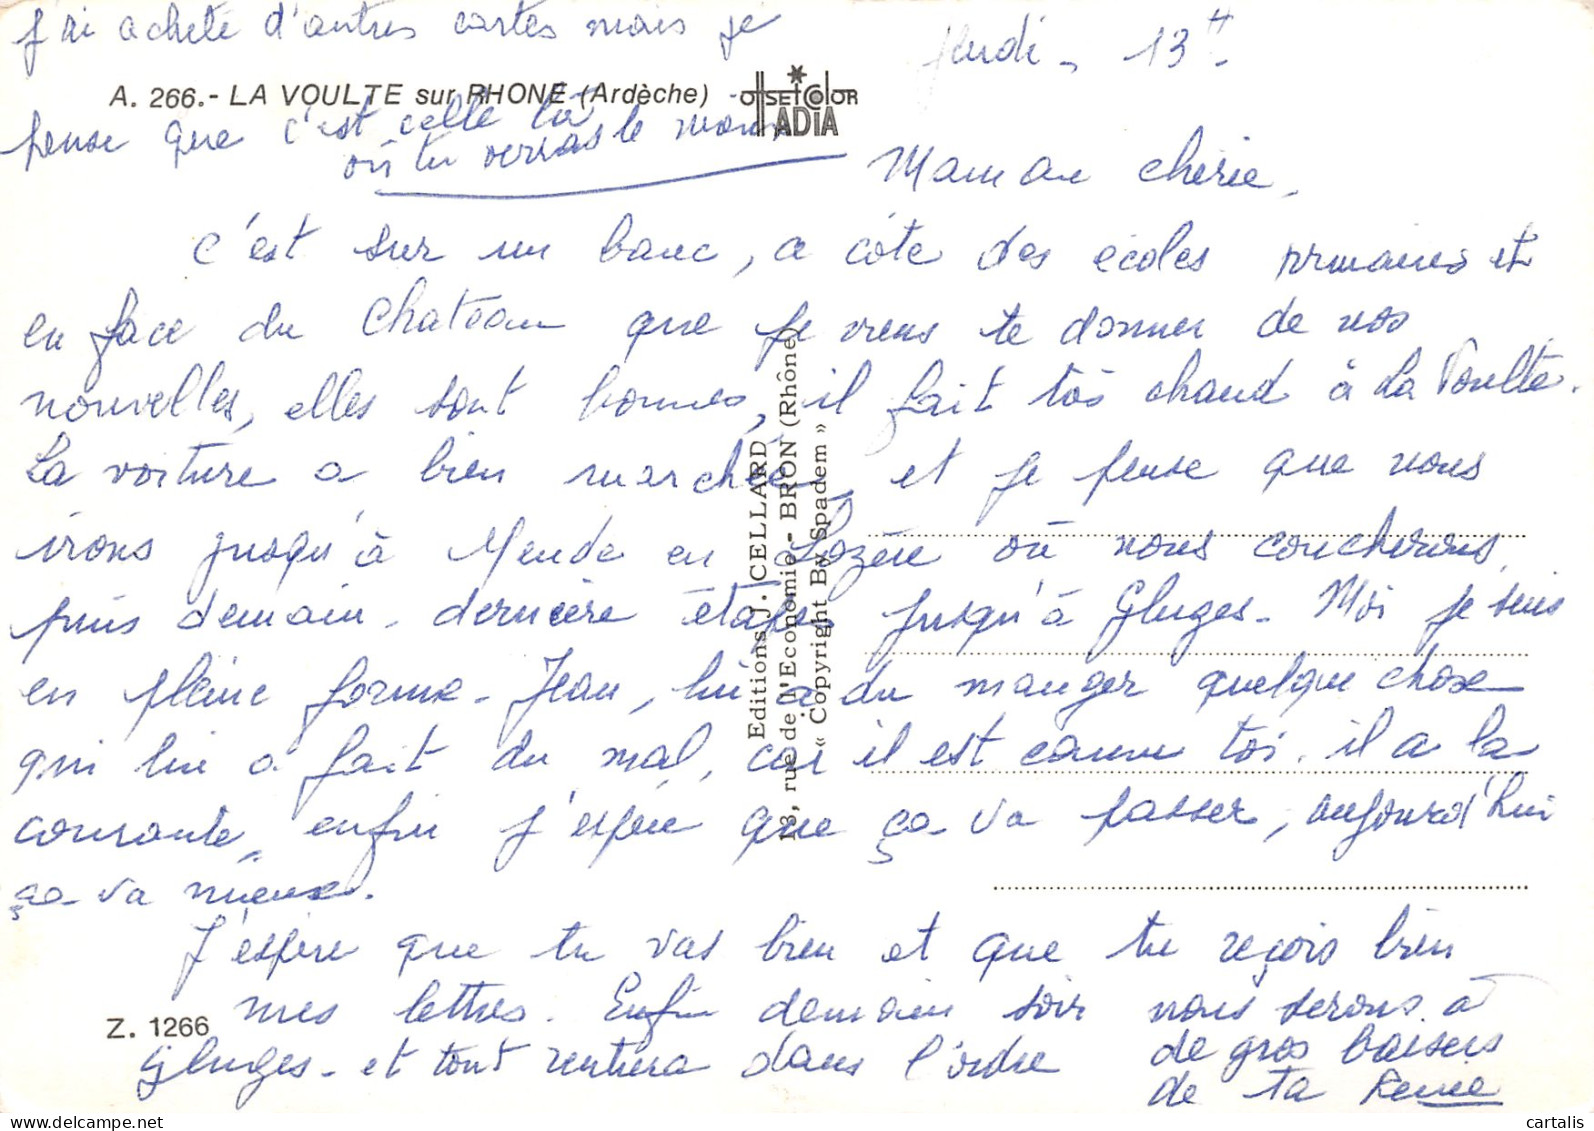 J'ai acheté d'autres cartes mais je
Jeudi - 13H -
A. 266.- LA VOULTE sur RHONE (Ardèche)
OffSET COLOR
ADIA
pense que c'est celle là
où tu verras le mieux
Maman chérie,
C'est sur un banc, a côté des écoles primaires et
en face du Chateau que je viens te donner de nos
nouvelles, elles sont bonnes, il fait très chaud à La Voulte.
La voiture a bien marchée, et je pense que nous
irons jusqu'à Mende en Lozère où nous coucherons,
puis demain - dernière étape jusqu'à Gluges - Moi je suis
en pleine forme - Jean, lui a du manger quelque chose
qui lui a fait du mal, car il est comme toi, il a la
courante, enfin j'espère que ça va passer, aujourd'hui
ça va mieux.
J'espère que tu vas bien et que tu reçois bien
mes lettres. Enfin demain soir nous serons à
Gluges - et tout rentrera dans l'ordre
de gros baisers
de ta Renée
Editions J. CELLARD
13, rue de l'Economie - BRON (Rhône)
« Copyright By Spadem »
Z. 1266
cartalis
delcampe.net